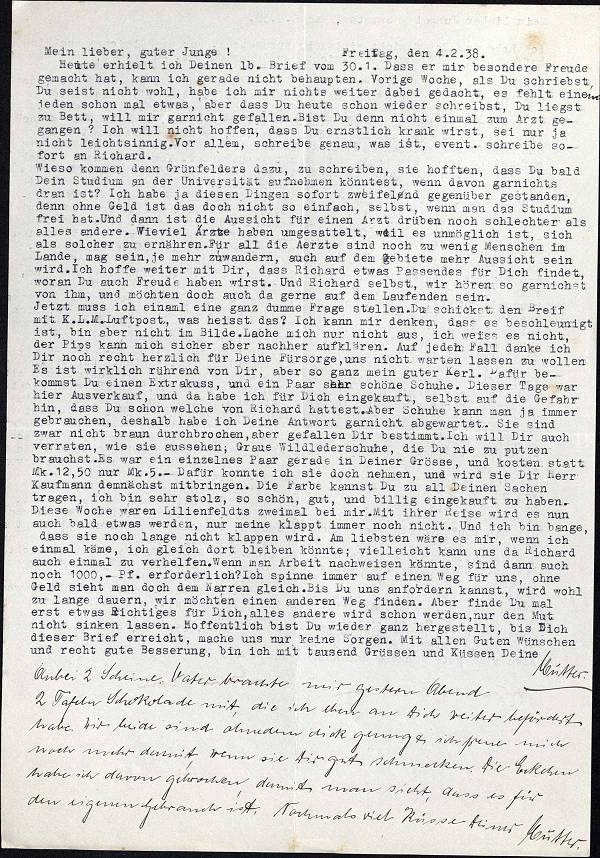 Mein lieber, guter Junge ! Freitag, den 4.2.38.
Heute erhielt ich Deinen lb. Brief vom 30.1. Dass er mir besondere Freude
gemacht hat, kann ich gerade nicht behaupten. Vorige Woche, als Du schriebst,
Du seist nicht wohl, habe ich mir nichts weiter dabei gedacht, es fehlt einem
jeden schon mal etwas, aber dass Du heute schon wieder schreibst, Du liegst
zu Bett, will mir garnicht gefallen.Bist Du denn nicht einmal zum Arzt ge-
gangen ? Ich will nicht hoffen, dass Du ernstlich krank wirst, sei nur ja
nicht leichtsinnig.Vor allem, schreibe genau, was ist, event. schreibe so-
fort an Richard.
Wieso kommen denn Grünfelders dazu, zu schreiben, sie hofften, dass Du bald
Dein Studium an der Universität aufnehmen könntest, wenn davon garnichts
dran ist? Ich habe ja diesen Dingen sofort zweifelnd gegenüber gestanden,
denn ohne Geld ist das doch nicht so einfach, selbst, wenn man das Studium
frei hat.Und dann ist die Aussicht für einen Arzt drüben noch schlechter als
alles andere. Wieviel Ärzte haben umgesattelt, weil es unmöglich ist, sich
als solcher zu ernähren.Für all die Aerzte sind noch zu wenig Menschen im
Lande, mag sein,je mehr zuwandern, auch auf dem Gebiete mehr Aussicht sein
wird.Ich hoffe weiter mit Dir, dass Richard etwas Passendes für Dich findet,
woran Du auch Freude haben wirst. Und Richard selbst, wir hören so garnichst
von ihm, und möchten doch auch da gerne auf dem Laufenden sein.
Jetzt muss ich einaml eine ganz dumme Frage stellen.Du schickst den Breif
mit K.L.M.Luftpost, was heisst das? Ich kann mir denken, dass es beschleunigt
ist, bin aber nicht im Bilde.Lache mich nur nicht aus, ich weiss es nicht,
der Pips kann mich sicher aber nachher aufklären. Auf jeden Fall danke ich
Dir noch recht herzlich für Deine Fürsorge,uns nicht warten lassen zu wollen
Es ist wirklich rührend von Dir, aber so ganz mein guter Kerl. Dafür be-
kommst Du einen Extrakuss, und ein Paar sehr schöne Schuhe. Dieser Tage war
hier Ausverkauf, und da habe ich für Dich eingekauft, selbst auf die Gefahr
hin, dass Du schon welche von Richard hattest.Aber Schuhe kann man ja immer
gebrauchen, deshalb habe ich Deine Antwort garnicht abgewartet. Sie sind
zwar nicht braun durchbrochen,aber gefallen Dir bestimmt.Ich will Dir auch
verraten, wie sie aussehen; Graue Wildlederschuhe, die Du nie zu putzen
brauchst.Es war ein einzelnes Paar gerade in Deiner Grösse, und kosten statt
Mk.12,50 nur Mk.5.- Dafür konnte ich sie doch nehmen, und wird sie Dir Herr
Kaufmann demnächst mitbringen. Die Farbe kannst Du zu all Deinen Sachen
tragen, ich bin sehr stolz, so schön, gut, und billig eingekauft zu haben.
Diese Woche waren Lilienfeldts zweimal bei mir.Mit ihrer Reise wird es nun
auch bald etwas werden, nur meine klappt immer noch nicht. Und ich bin bange,
dass sie noch lange nicht klappen wird. Am liebsten wäre es mir, wenn ich
einmal käme, ich gleich dort bleiben könnte; vielleicht kann uns da Richard
auch einmal zu verhelfen.Wenn man Arbeit nachweisen könnte, sind dann auch
noch 1000,- Pf. erforderlich?Ich spinne immer auf einen Weg für uns, ohne
Geld sieht man doch dem Narren gleich.Bis Du uns anfordern kannst, wird wohl
zu lange dauern, wir möchten einen anderen Weg finden. Aber finde Du mal
erst etwas Richtiges für Dich,alles andere wird schon werden,nur den Mut
nicht sinken lassen. Hoffentlich bist Du wieder ganz hergestellt, bis Dich
dieser Brief erreicht, mache uns nur keine Sorgen. Mit allen Guten Wünschen
und recht gute Besserung, bin ich mit tausend Grüssen und Küssen Deine
Mutter.
Anbei 2 Scheine. Vater brachte mir gestern Abend
2 Tafeln Schokolade mit, die ich eben an Dich weiter befördert
habe. Wir beide sind ohnedem dick genug, ich freue mich
noch mehr damit, wenn sie Dir gut schmecken. Die Eckchen
habe ich davon gebrochen, damit man sieht, dass es für
den eigenen Gebrauch ist. Nochmals viel Küsse Deiner Mutter.